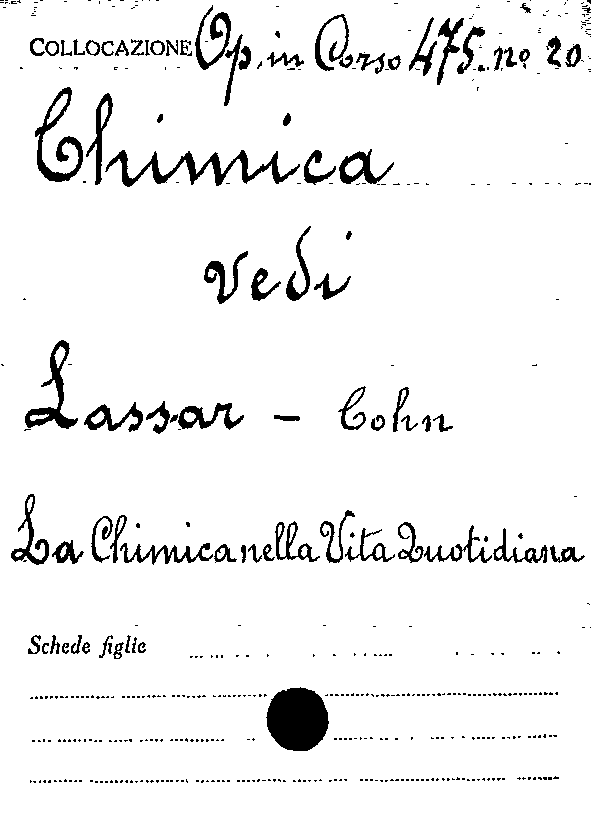 COLLOCAZIONE Op. in Corso 475. nº 20
Chimica
vedi
Lassar - Cohn
La Chimica nella Vita Quotidiana
Schede figlie